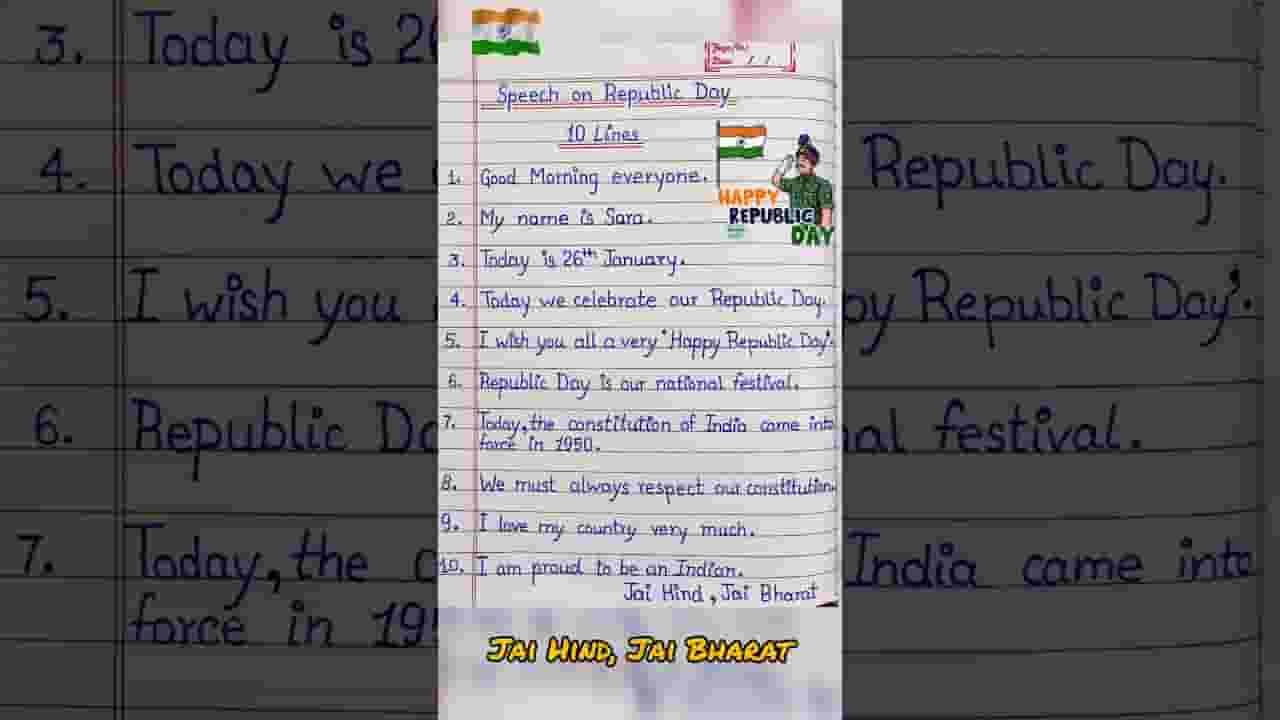 3. Today is 26
4. Today we Republic Day.
5. I wish you py Republic Day'.
6. Republic Da nal festival.
7. Today, the c India came into
force in 195
Speech on Republic Day
10 Lines
1. Good Morning everyone.
2. My name is Sara.
3. Today is 26th January.
4. Today we celebrate our Republic Day.
5. I wish you all a very 'Happy Republic Day'.
6. Republic Day is our national festival.
7. Today, the constitution of India came into
force in 1950.
8. We must always respect our constitution.
9. I love my country very much.
10. I am proud to be an Indian.
Jai Hind, Jai Bharat
HAPPY
REPUBLIC
DAY
JAI HIND, JAI BHARAT